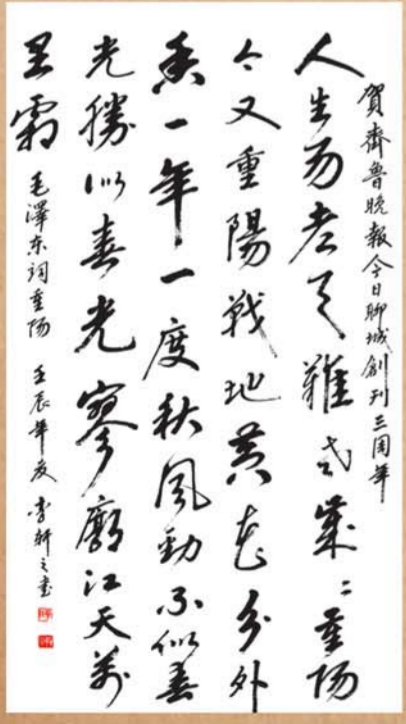 賀齊魯晚報今日聊城創刊三周年
人生易老天難老歲〻重陽
今又重陽戰地黃花分外
香一年一度秋風勁不似春
光勝似春光寥廓江天萬
里霜
毛澤東詞重陽 壬辰年夏 李軒之書